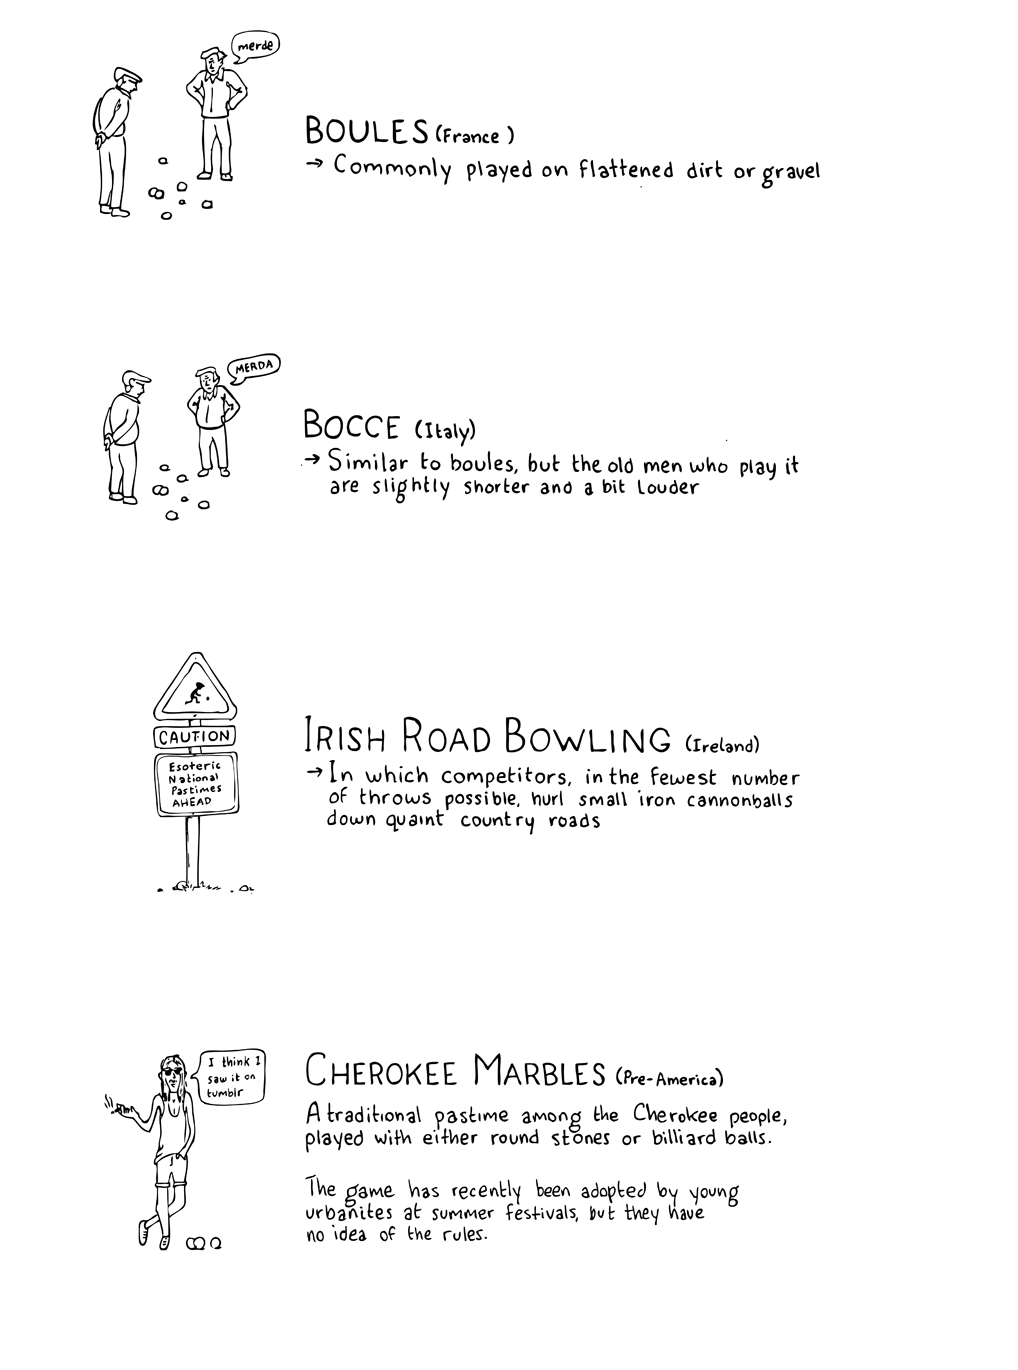 merde
BOULES (France)
→ Commonly played on flattened dirt or gravel
MERDA
BOCCE (Italy)
→ Similar to boules, but the old men who play it
are slightly shorter and a bit louder
CAUTION
Esoteric
National
Pastimes
AHEAD
IRISH ROAD BOWLING (Ireland)
→ In which competitors, in the fewest number
of throws possible, hurl small iron cannonballs
down quaint country roads
I think I
saw it on
tumblr
CHEROKEE MARBLES (Pre-America)
A traditional pastime among the Cherokee people,
played with either round stones or billiard balls.
The game has recently been adopted by young
urbanites at summer festivals, but they have
no idea of the rules.